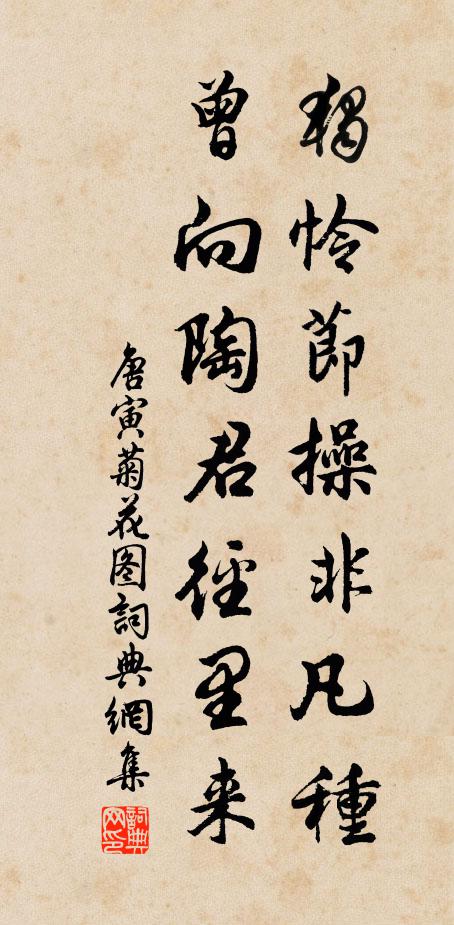 獨怜節操非凡種
曾向陶君徑里来
唐寅菊花图詞典網集
詞典网印